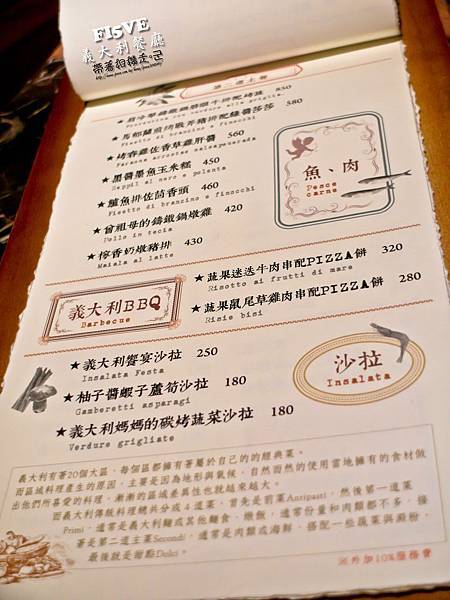 FI5VE
義大利餐廳
帶著相機走
第二道主餐
850
馬都蘭煎烤戰斧豬排配綠醬莎莎 580
Fisetto di brancino e finocchi
烤春雞佐香草雞肝醬 560
Faraona arrostas salsapeurada
墨醬墨魚玉米糕 450
Seppil al nero e polenta
鱸魚排佐茴香頭 460
Fisetto di brancino e finocchi
曾祖母的鑄鐵鍋燉雞 420
Pollo in tecia
檸香奶燉豬排 430
Maiala al latte
魚、肉
Pesce
carne
義大利BBQ
Barbecue
蔬果迷迭牛肉串配PIZZA餅 320
Risotto ai frutti di mare
蔬果鼠尾草雞肉串配PIZZA餅 280
Risie bisi
義大利饗宴沙拉 250
Insalata Festa
柚子醬蝦子蘆筍沙拉 180
Gamberetti asparagi
義大利媽媽的碳烤蔬菜沙拉 180
Verdure grigliate
沙拉
Insalata
義大利有著20個大區，每個區都擁有著屬於自己的的經典菜。
而區域料理產生的原因，主要是因為地形與氣候，自然而然的使用當地擁有的食材做
出他們所喜愛的料理，漸漸的區域差異性也就越來越大。
而義大利傳統料理總共分成 4 道菜，首先是前菜Antipasti，然後第一道菜
Primi，通常是義大利麵或其他麵食、燉飯，通常份量和肉類都不多，接
著是第二道主菜Secondi，通常是肉類或海鮮，搭配一些蔬菜與澱粉，
最後就是甜點Dolci。
※外加10%服務費